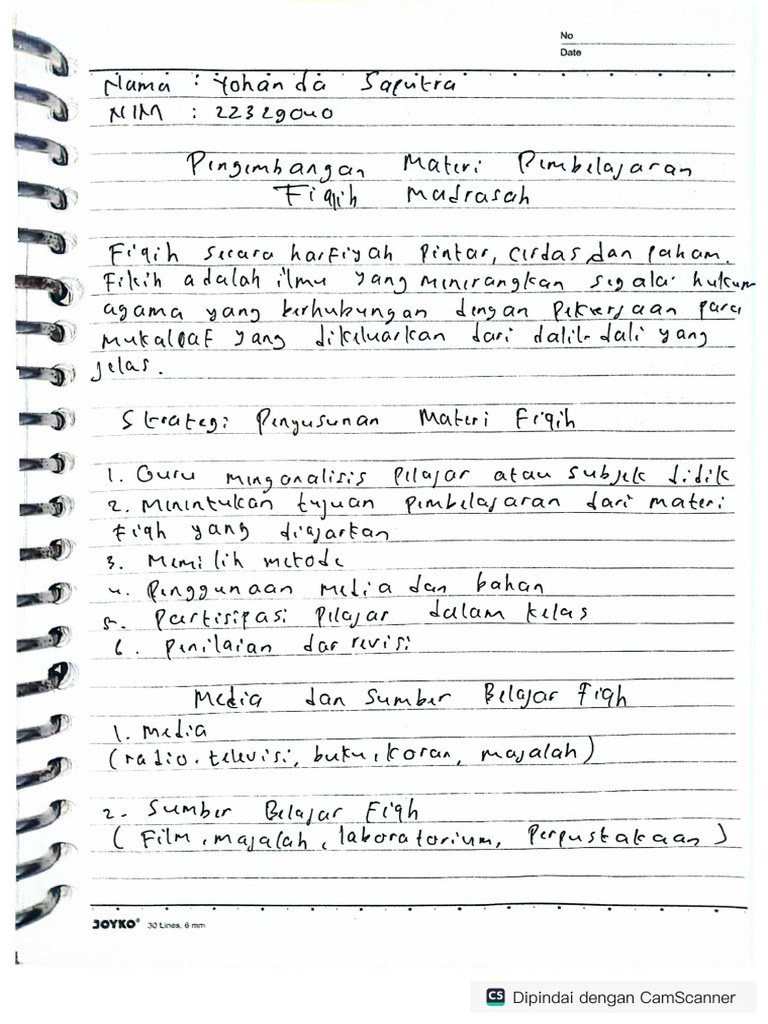 No
Date
Nama : Yohanda Saputra
NIM : 22329040
Pengembangan Materi Pembelajaran
Fiqih Madrasah
Fiqih secara harfiyah pintar, cerdas dan paham.
Fikih adalah ilmu yang menerangkan segala hukum
agama yang berhubungan dengan pekerjaan para
mukallaf yang dikeluarkan dari dalil-dali yang
jelas.
Strategi Penyusunan Materi Fiqih
1. Guru menganalisis pelajar atau subjek didik
2. Menentukan tujuan pembelajaran dari materi
Fiqh yang diajarkan
3. Memilih metode
4. Penggunaan media dan bahan
5. Partisipasi pelajar dalam kelas
6. Penilaian dan revisi
Media dan Sumber Belajar Fiqh
1. Media
(radio, televisi, buku, koran, majalah)
2. Sumber Belajar Fiqh
( Film, majalah, laboratorium, Perpustakaan )
JOYKO® 30 Lines, 6 mm
CS Dipindai dengan CamScanner